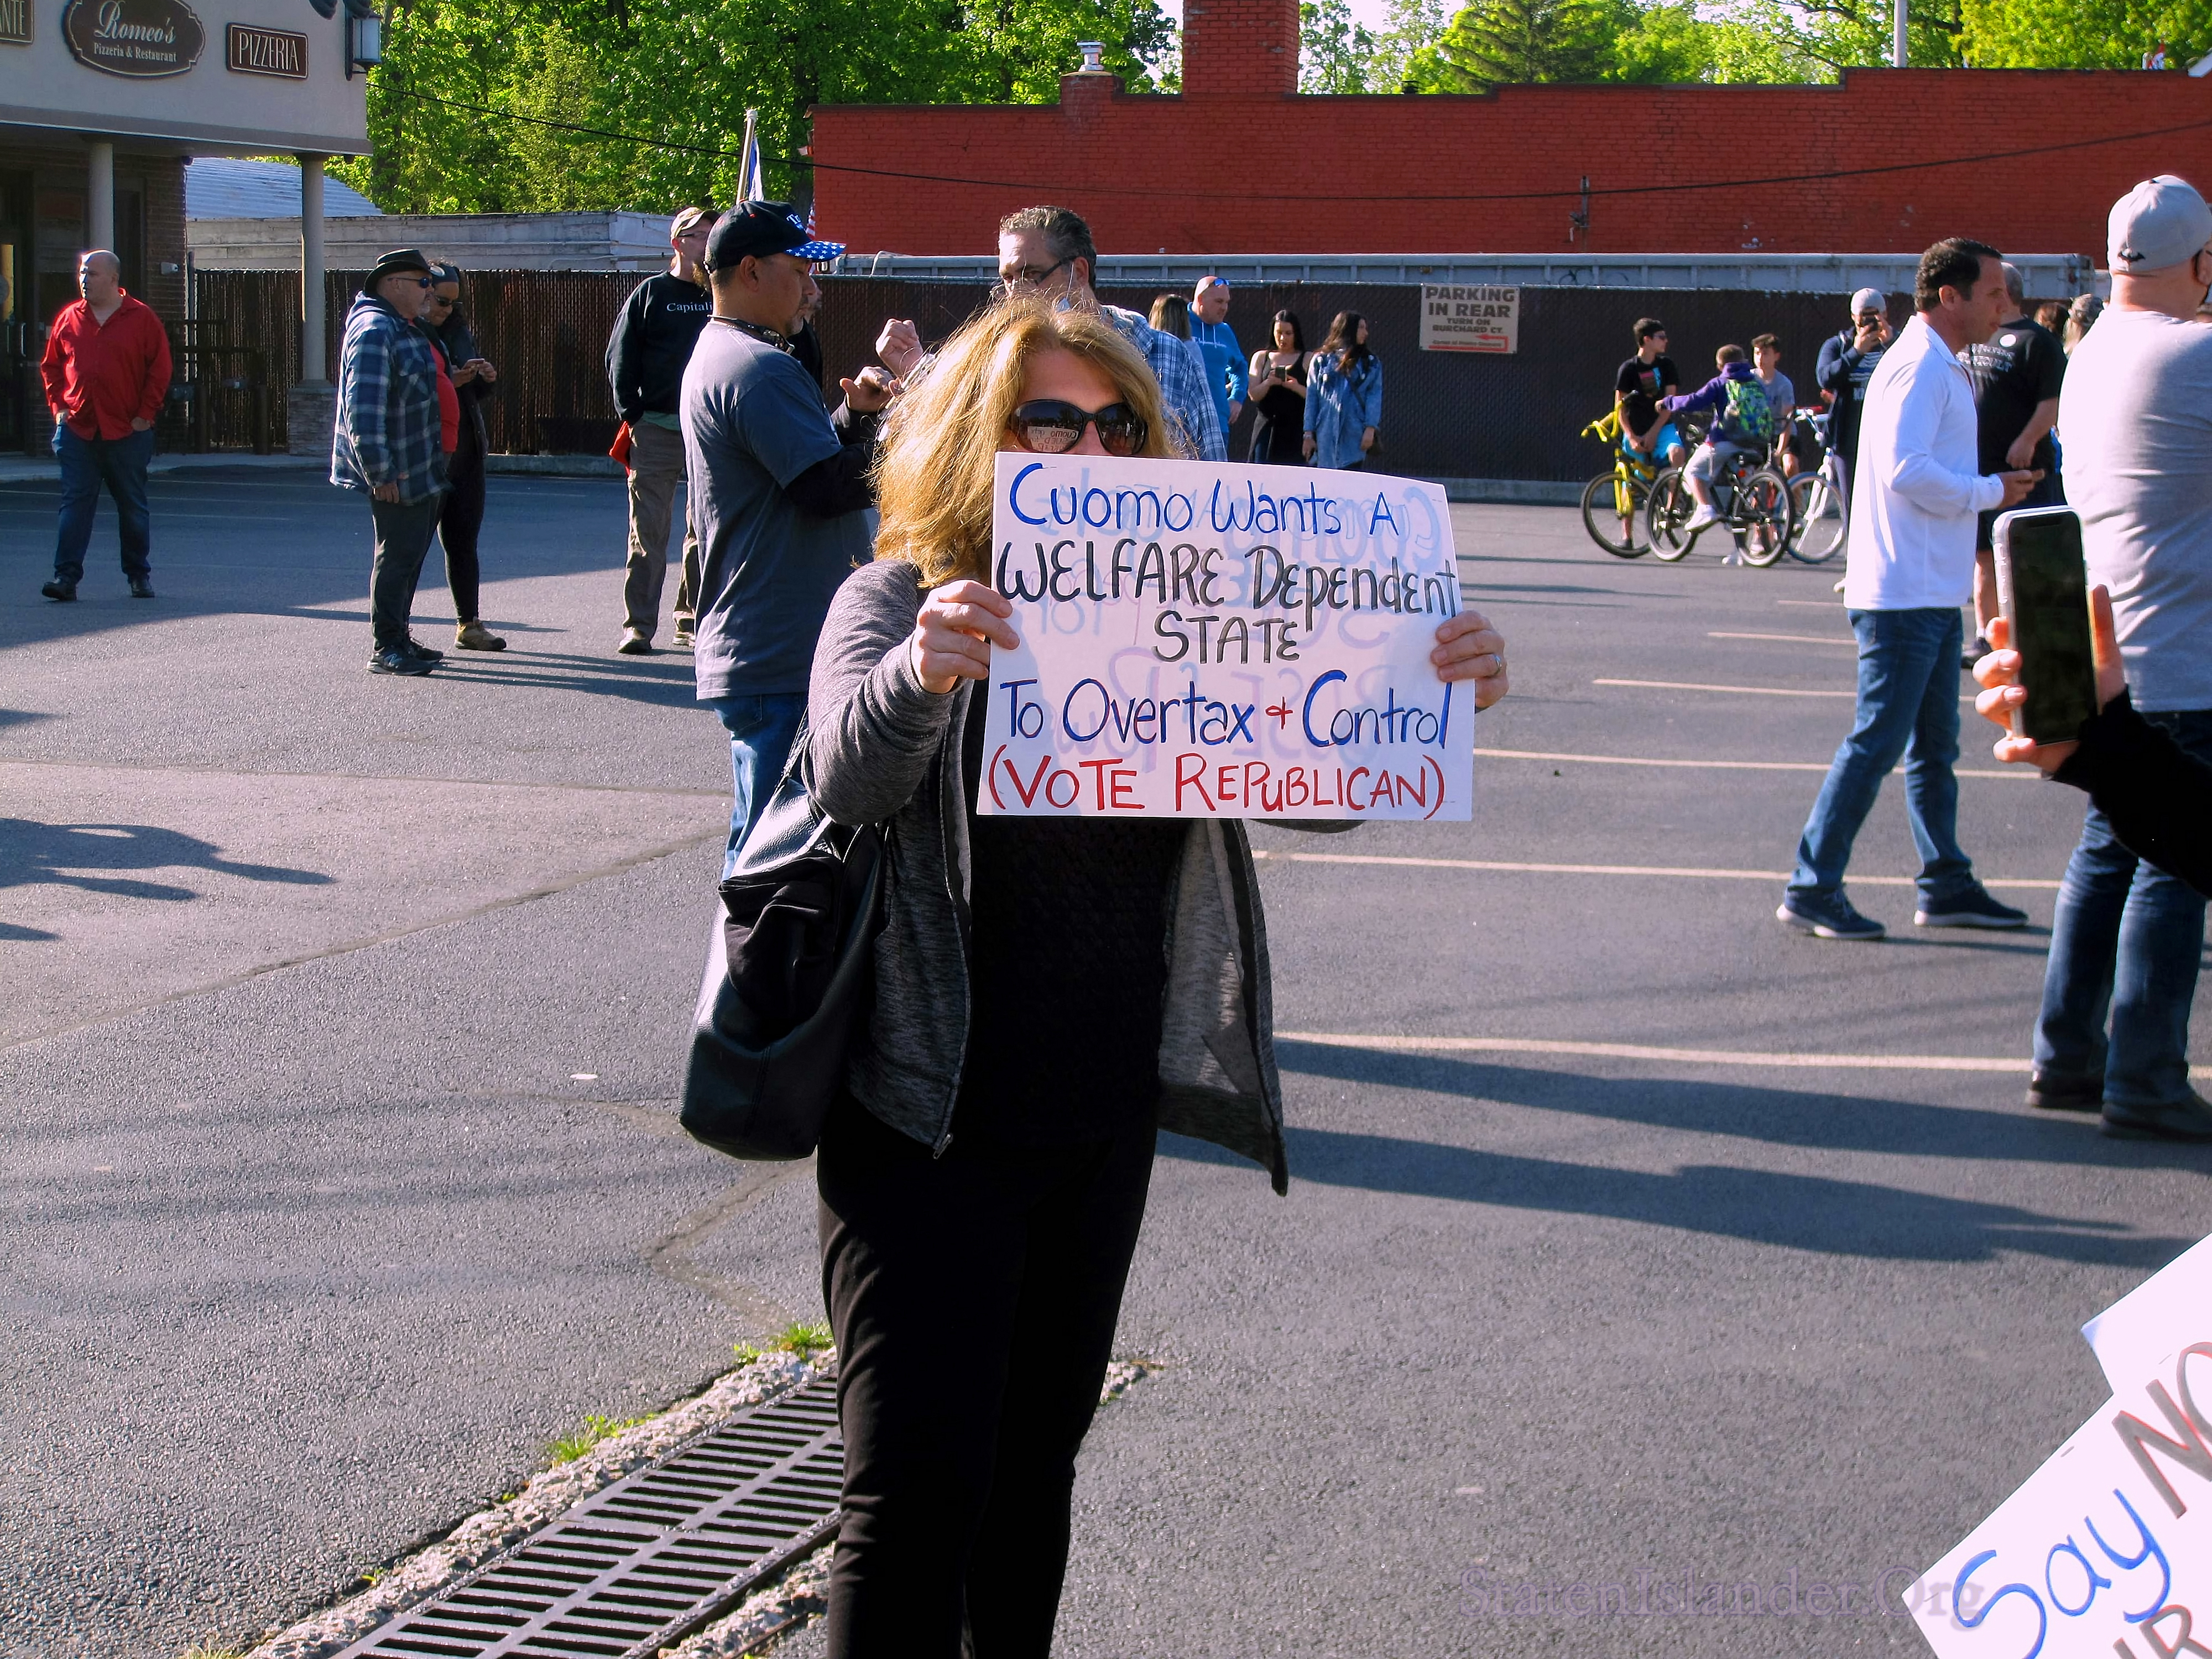 Romeo's
Pizzeria & Restaurant
PIZZERIA
PARKING
IN REAR
TURN ON
BURCHARD CT.
Cuomo Wants A
WELFARE Dependent
STATE
To Overtax & Control
(VOTE REPUBLICAN)
Say NO
StatenIslander.Org